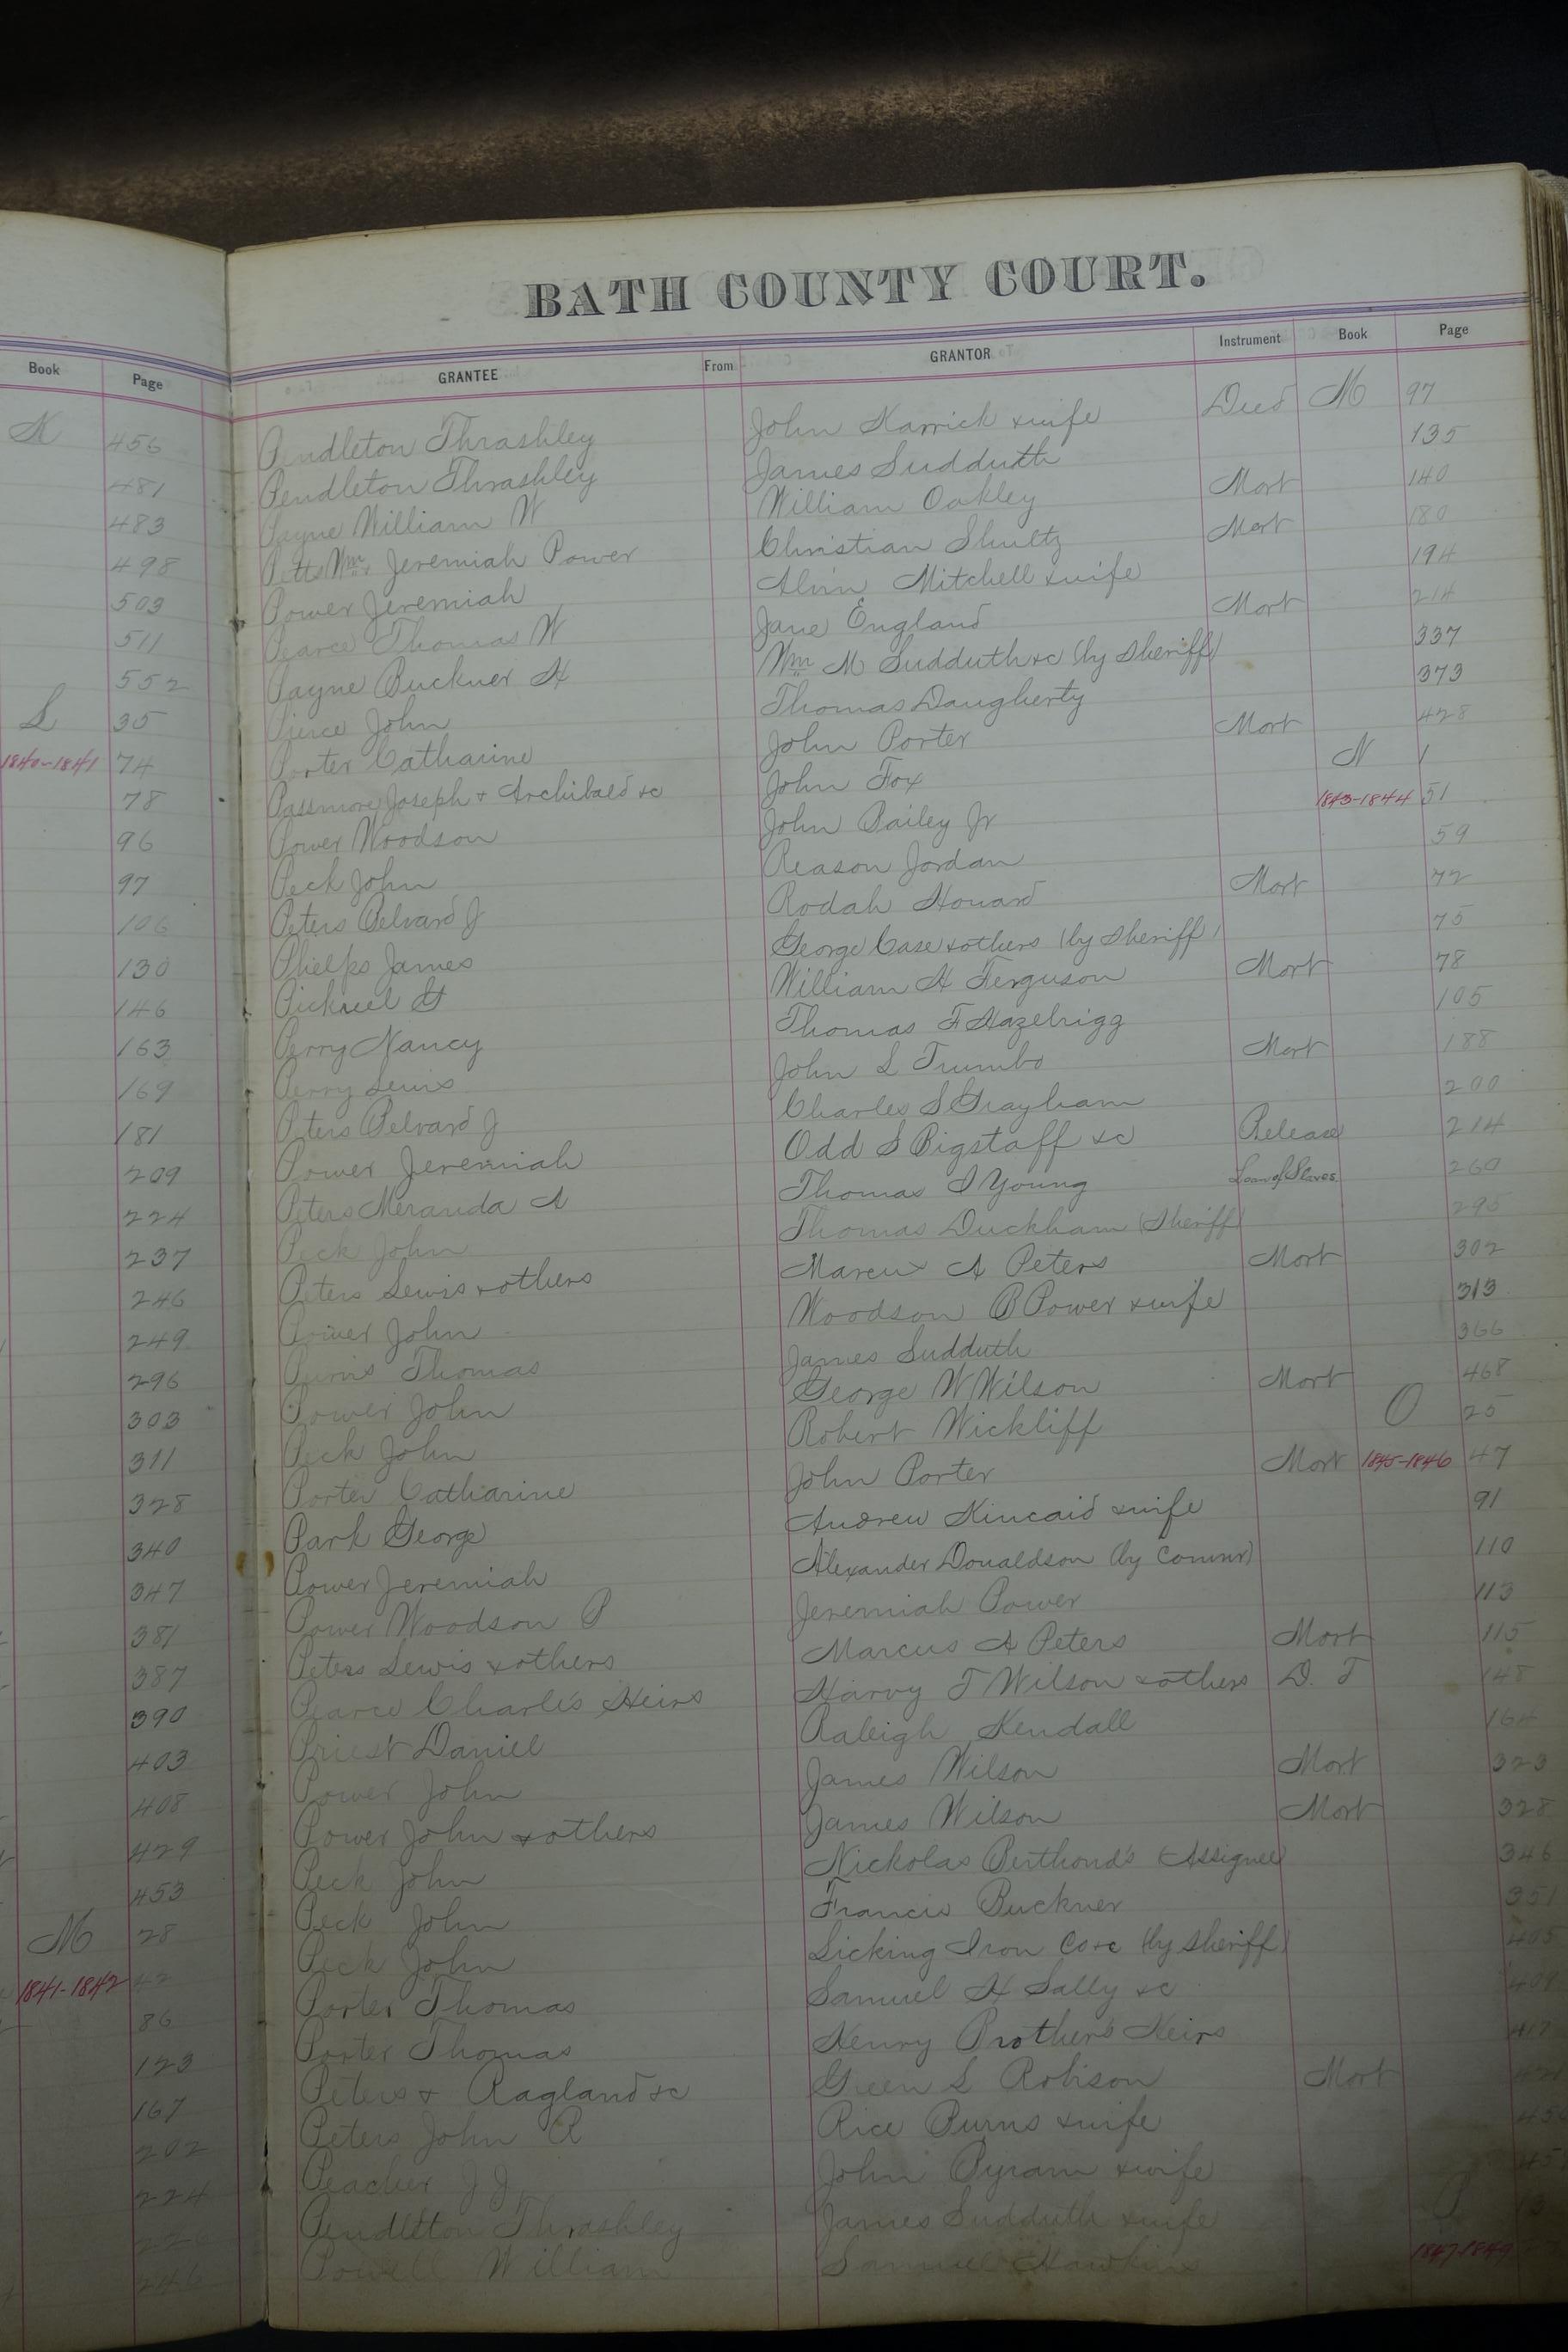 Book Page
K 456
481
483
498
503
511
552
L 35
1840-1841 74
78
96
97
106
130
146
163
169
181
209
224
237
246
249
296
303
311
328
340
347
381
387
390
403
408
429
453
M 28
1841-1842 42
86
123
167
202
224
226
246
BATH COUNTY COURT.
GRANTEE From GRANTOR Instrument Book Page
Pendleton Thrashley John Karrick & wife Deed M 97
Pendleton Thrashley James Sudduth 135
Payne William W William Oakley Mort 140
Petts Wm, Jeremiah Power Christian Shultz Mort 180
Power Jeremiah Alvin Mitchell & wife 194
Pearce Thomas W Jane England Mort 214
Payne Buckner H Wm M Sudduth &c (by Sheriff) 337
Pierce John Thomas Daugherty 373
Porter Catharine John Porter Mort 428
Passmore Joseph & Archibald &c John Fox N 1
Power Woodson John Bailey Jr 1843-1844 51
Peck John Reason Jordan 59
Peters Belvard J Rodah Howard Mort 72
Phelps James George Case & others (by Sheriff) 75
Picknel G William H Ferguson Mort 78
Perry Nancy Thomas F Hazelrigg 105
Perry Lewis John L Trumbo Mort 188
Peters Belvard J Charles S Grayham 200
Power Jeremiah Odd S Bigstaff &c Release 214
Peters Meranda A Thomas I Young Loan of Slaves 260
Peck John Thomas Duckham (Sheriff) 295
Peters Lewis & others Marcus A Peters Mort 302
Power John Woodson B Power & wife 313
Purvis Thomas James Sudduth 366
Power John George W Wilson Mort 468
Peck John Robert Wickliff O 25
Porter Catharine John Porter Mort 1845-1846 47
Park George Andrew Kincaid & wife 91
Power Jeremiah Alexander Donaldson (by Commr) 110
Power Woodson P Jeremiah Power 113
Peters Lewis & others Marcus A Peters Mort 115
Pearce Charles Heirs Harvy T Wilson & others D. T 148
Priest Daniel Raleigh Kendall 164
Power John James Wilson Mort 323
Power John & others James Wilson Mort 328
Peck John Nickolas Berthond's Assignee 346
Peck John Francis Buckner 351
Peck John Licking Iron Co &c (by Sheriff) 405
Porter Thomas Samuel H Sally &c 409
Porter Thomas Henry Prother's Heirs 417
Peters & Ragland &c Green L Robison Mort
Peters John R Rice Burns & wife
Peacher J J John Byram & wife
Pendleton Thrashley James Sudduth & wife P
Powell William Samuel Hawkins 1847-1849